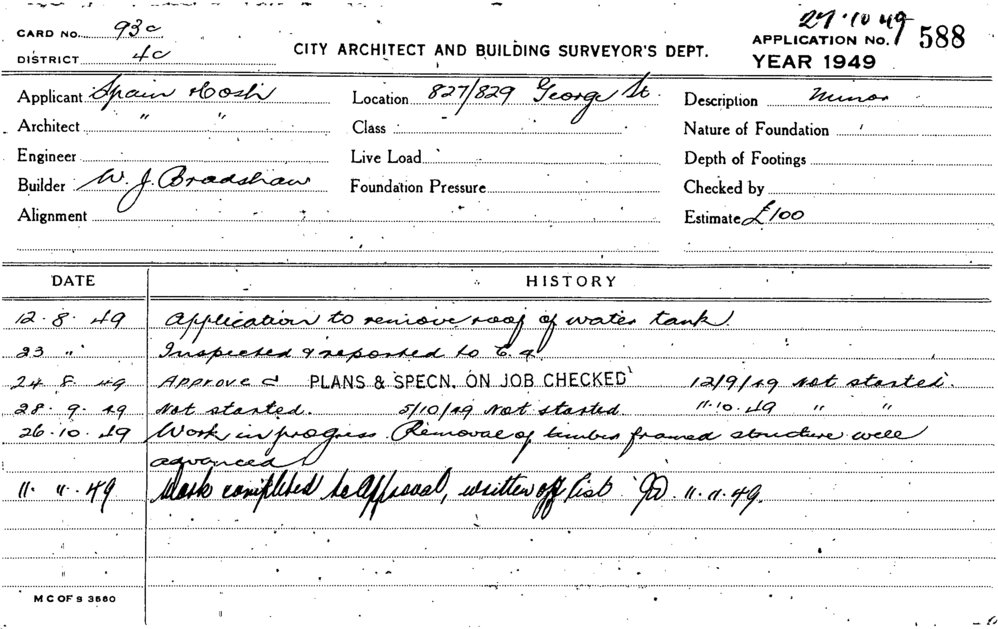 27·10·49
CARD NO. 93c
CITY ARCHITECT AND BUILDING SURVEYOR'S DEPT.
APPLICATION NO. 588
DISTRICT 4c
YEAR 1949
Applicant Spain & Cosh Location 827/829 George St. Description Minor
Architect " " Class Nature of Foundation
Engineer Live Load Depth of Footings
Builder W. J. Bradshaw Foundation Pressure Checked by
Alignment Estimate £100
DATE HISTORY
12·8·49 Application to remove roof of water tank.
23 " Inspected & reported to C.A.
24·8·49 Approved PLANS & SPECN. ON JOB CHECKED 12/9/49 Not started.
28·9·49 Not started. 5/10/49 Not started 11·10·49 " "
26·10·49 Work in progress. Removal of timber framed structure well
advanced
11·11·49 Work completed to approval, written off list JD 11·11·49.
M C OF S 3560